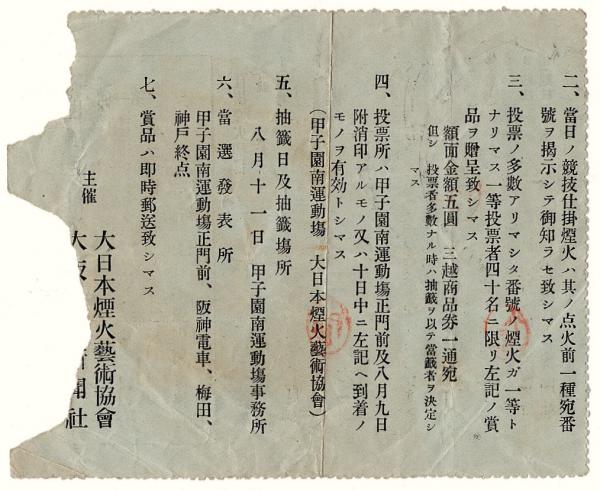 二、當日ノ競技仕掛煙火ハ其ノ点火前一種宛番
號ヲ揭示シテ御知ラセ致シマス
三、投票ノ多數アリマシタ番號ノ煙火ガ一等ト
ナリマス一等投票者四十名ニ限リ左記ノ賞
品ヲ贈呈致シマス
額面金額五圓 三越商品券一通宛
但シ 投票者多數ナル時ハ抽籤ヲ以テ當籤者ヲ決定シ
マス
四、投票所ハ甲子園南運動塲正門前及八月九日
附消印アルモノ又ハ十日中ニ左記ヘ到着ノ
モノヲ有効トシマス
(甲子園南運動塲 大日本煙火藝術協會)
五、抽籤日及抽籤塲所
八月十一日 甲子園南運動塲事務所
六、當選發表所
甲子園南運動塲正門前、阪神電車、梅田、
神戸終点
七、賞品ハ即時郵送致シマス
主催
大日本煙火藝術協會
大阪 新聞社